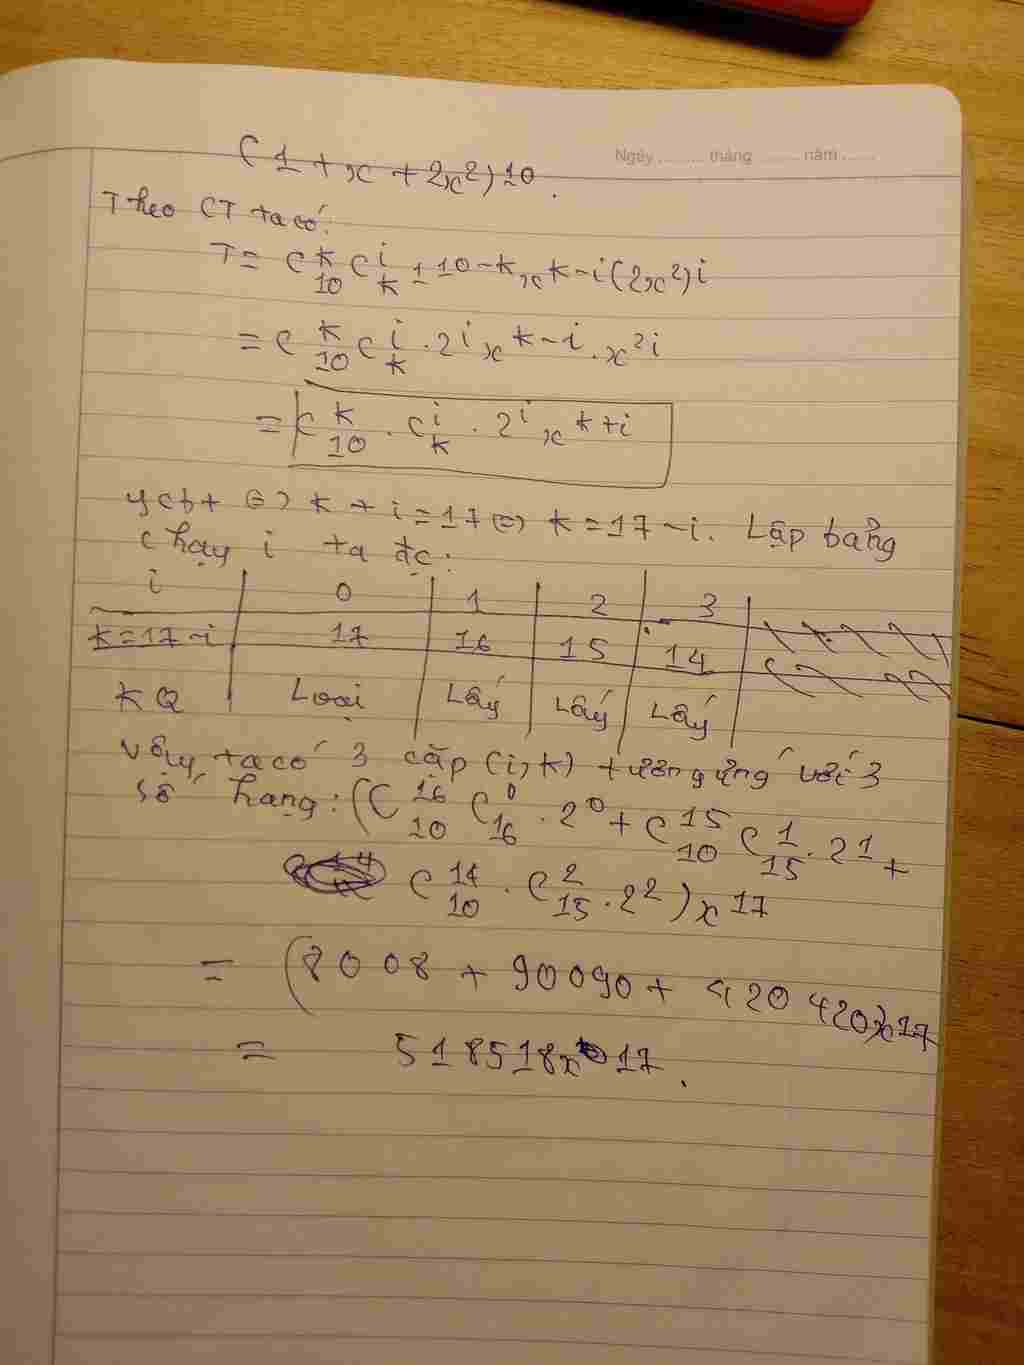 Ngày ......... tháng ......... năm ......
(1 + x + 2x²)10.
Theo CT ta có:
T = C k 10 C i k 1 10-k x k-i (2x²)i
= C k 10 C i k . 2i x k-i . x²i
= C k 10 . C i k . 2i x k+i
ycbt ⇔ k + i = 17 ⇔ k = 17 - i. Lập bảng
chạy i ta đc:
i 0 1 2 3
k = 17 - i 17 16 15 14
KQ Loại Lấy Lấy Lấy
Vậy ta có 3 cặp (i, k) tương ứng với 3
số hạng: (C 16 10 C 0 16 . 2⁰ + C 15 10 C 1 15 . 21 +
C 14 10 . C 2 15 . 2²) x 17
= (8008 + 90090 + 420420)x17
= 518518x17.